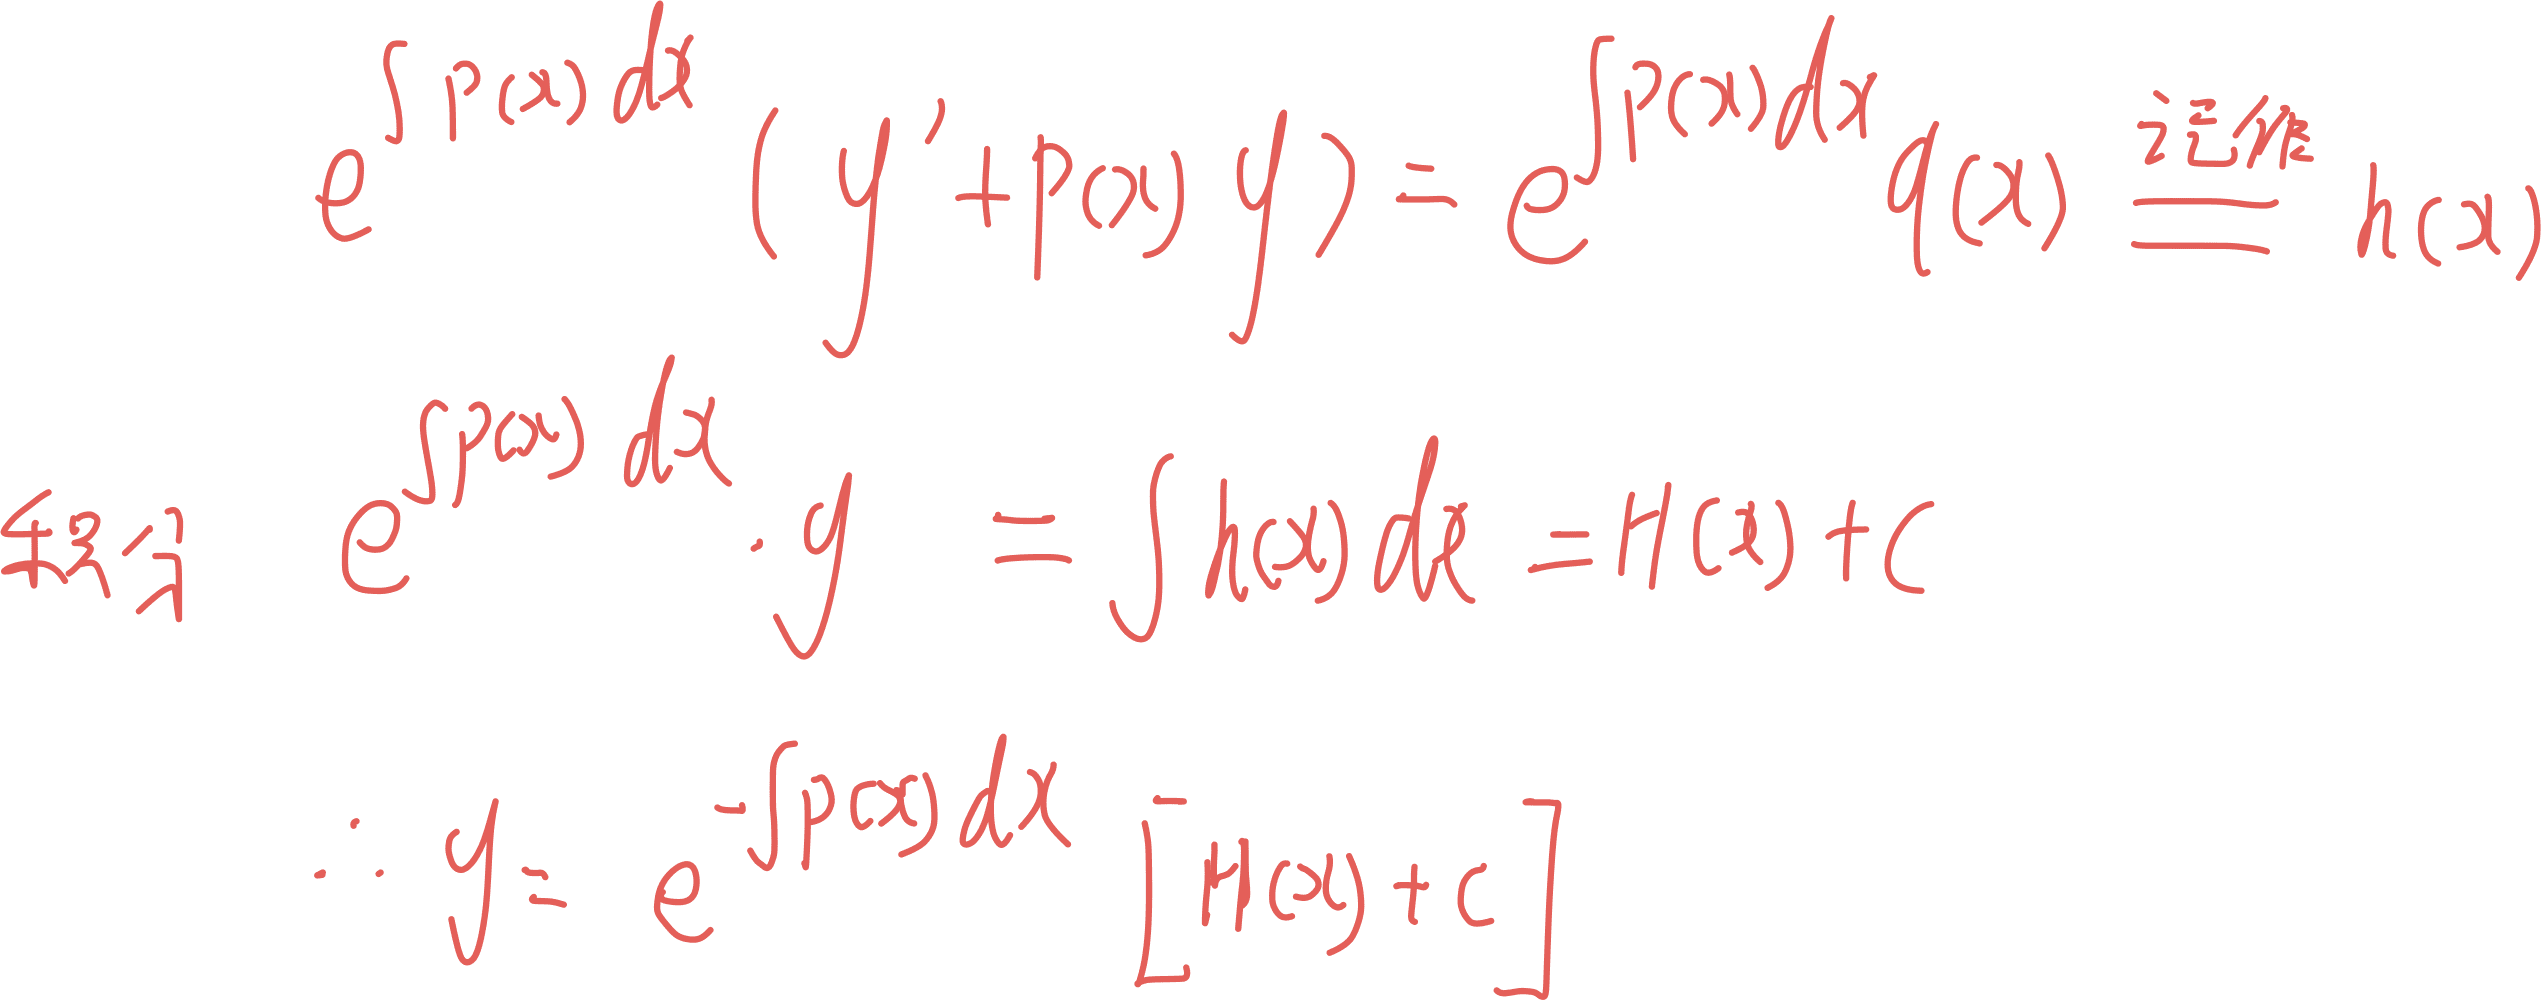 e^{∫p(x)dx} (y' + p(x)y) = e^{∫p(x)dx} q(x) 记作 h(x)
积分 e^{∫p(x)dx} · y = ∫h(x)dx = H(x) + C
∴ y = e^{-∫p(x)dx} [H(x) + C]